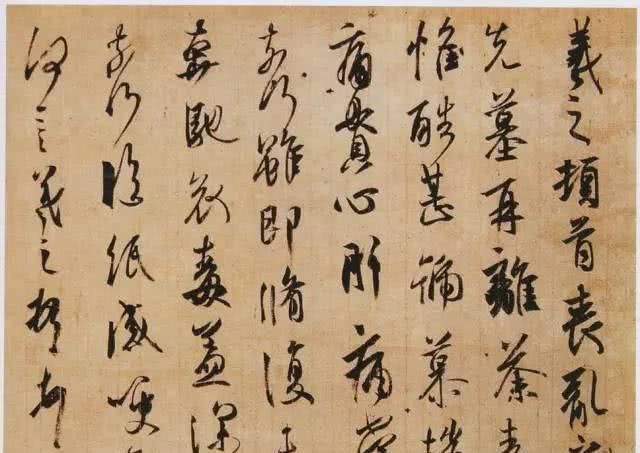 羲之頓首喪亂
先墓再離荼
惟酷甚號慕摧
痛貫心肝痛當
奈何雖即脩復
奔馳哀毒益深
奈何臨紙感哽
何言羲之頓首